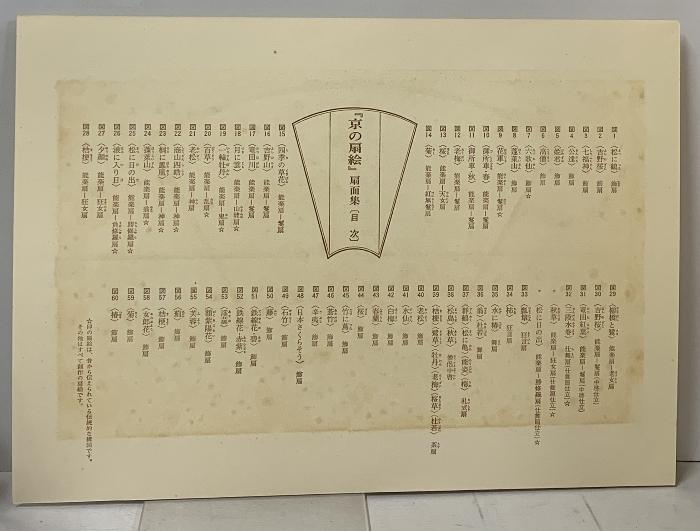 『京の扇絵』扇面集〔目次〕
図1 〈松に鶴〉 飾扇
図2 〈吉野桜〉 飾扇
図3 〈七福神〉 飾扇
図4 〈公達〉 飾扇
図5 〈姫君〉 飾扇
図6 〈高砂〉 飾扇
図7 〈六歌仙〉 飾扇☆
図8 〈蓬莱山〉 能楽扇―鬘扇
図9 〈花軍〉 能楽扇―鬘扇☆
図10 〈御所車・春〉 能楽扇―鬘扇
図11 〈御所車・秋〉 能楽扇―鬘扇
図12 〈老梅〉 能楽扇―鬘扇
図13 〈桜〉 能楽扇―天女扇
図14 〈菊〉 能楽扇―紅無鬘扇
図15 〈四季の草花〉 能楽扇―鬘扇
図16 〈吉野山〉 能楽扇―鬘扇
図17 〈竜田川〉 能楽扇―鬘扇
図18 〈月に雲〉 能楽扇―山姥扇☆
図19 〈一輪牡丹〉 能楽扇―鬼扇☆
図20 〈百草〉 能楽扇―乱扇☆
図21 〈老松〉 能楽扇―神扇
図22 〈商山四皓〉 能楽扇―神扇☆
図23 〈桐に鳳凰〉 能楽扇―神扇☆
図24 〈蓬莱山〉 能楽扇―翁扇☆
図25 〈松に日の出〉 能楽扇―勝修羅扇☆
図26 〈波に入り日〉 能楽扇―負修羅扇☆
図27 〈夕顔〉 能楽扇―狂女扇
図28 〈桔梗〉 能楽扇―狂女扇
図29 〈柳橋と鷺〉 能楽扇―老女扇
図30 〈吉野桜〉 能楽扇―鬘扇〔中啓仕立〕
図31 〈竜田紅葉〉 能楽扇―鬘扇〔中啓仕立〕
図32 〈三段水巻〉 仕舞扇〔仕舞扇仕立〕☆
〈秋草〉 能楽扇―狂女扇〔仕舞扇仕立〕☆
〈松に日の出〉 能楽扇―勝修羅扇〔仕舞扇仕立〕☆
図33 〈瓢箪〉 狂言扇
図34 〈柿〉 狂言扇
図35 〈水に椿〉 舞扇
図36 〈杜若〉 舞扇
図37 〈群鶴〉〈松に亀〉〈梅〉 礼式扇
図38 〈松島〉〈秋草〉
図39 〈桔梗〉〈鷺草〉〈牡丹〉〈老梅〉〈桜草〉〈杜若〉 茶扇
図40 〈老松〉 飾扇
図41 〈水仙〉 飾扇
図42 〈白梅〉 飾扇
図43 〈春蘭〉 飾扇
図44 〈桜〉 飾扇
図45 〈竹に蔦〉 飾扇
図46 〈蒼竹〉 飾扇
図47 〈辛夷〉 飾扇
図48 〈日本さくらそう〉 飾扇
図49 〈石竹〉 飾扇
図50 〈藤〉 飾扇
図51 〈鉄線花・碧〉 飾扇
図52 〈鉄線花・赤紫〉 飾扇
図53 〈蓮〉 飾扇
図54 〈額紫陽花〉 飾扇
図55 〈芙蓉〉 飾扇
図56 〈萩〉 飾扇
図57 〈桔梗〉 飾扇
図58 〈女郎花〉 飾扇
図59 〈菊〉 飾扇
図60 〈椿〉 飾扇
☆印の扇絵は、昔から伝えられている伝統的な構図です。
その他はすべて創作の扇絵です。